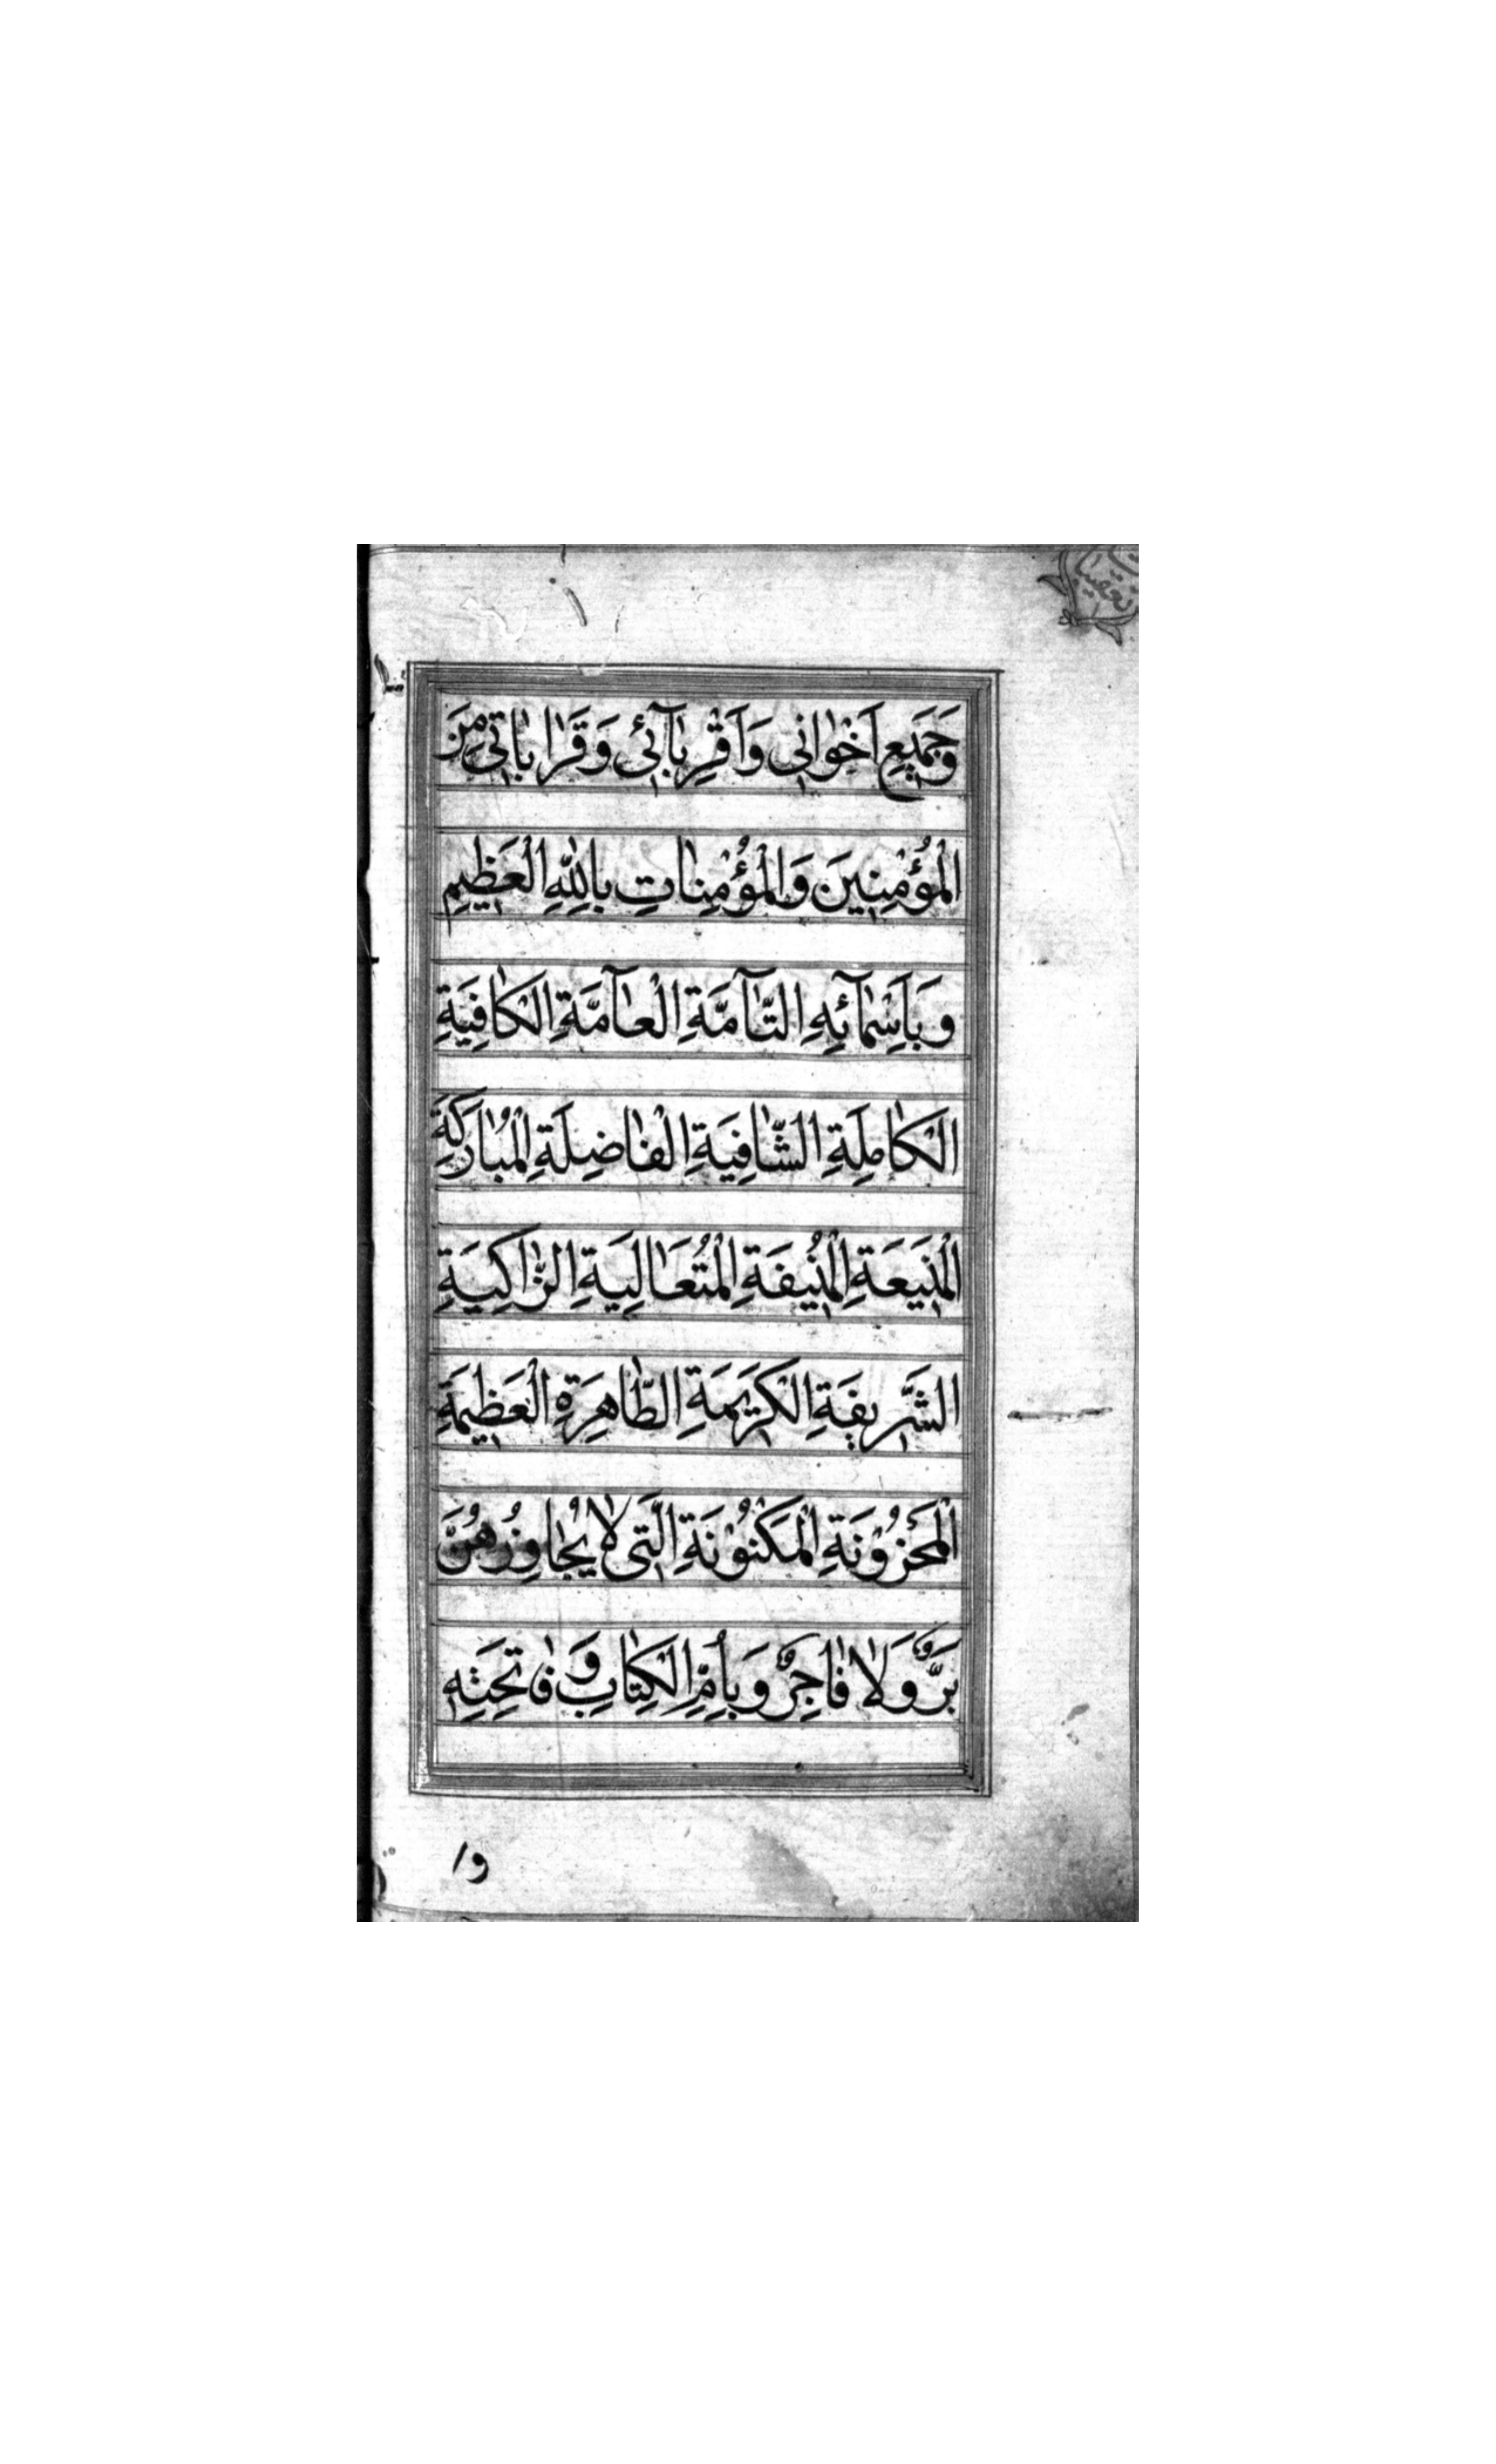 وَجَمِيعِ اَخْوٰانِى وَاَقْرِبٰآئِى وَقَرٰابٰاتِى مِنَ
الْمُؤْمِنِينَ وَالْمُؤْمِنٰاتِ بِاللّٰهِ الْعَظِيمِ
وَبِاَسْمٰآئِهِ التّٰآمَّةِ الْعٰآمَّةِ الْكٰافِيَةِ
الْكٰامِلَةِ الشّٰافِيَةِ الْفٰاضِلَةِ الْمُبٰارَكَةِ
الْمَنِيعَةِ الْمُنِيفَةِ الْمُتَعٰالِيَةِ الزّٰاكِيَةِ
الشَّرِيفَةِ الْكَرِيمَةِ الطّٰاهِرَةِ الْعَظِيمَةِ
الْمَخْزُوْنَةِ الْمَكْنُوْنَةِ الَّتِى لٰا يُجٰاوِزُهُنَّ
بَرٌّ وَلٰا فٰاجِرٌ وَبِاُمِّ الْكِتٰابِ وَ فٰاتِحَتِهِ
وا